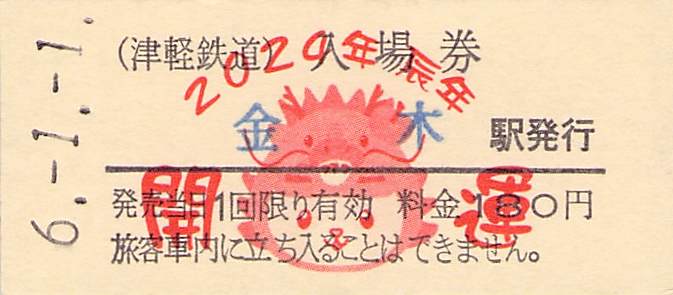 6.-1.-1.
(津軽鉄道) 入場券
2024年辰年
金木 駅発行
開運
発売当日1回限り有効 料金180円
旅客車内に立ち入ることはできません。